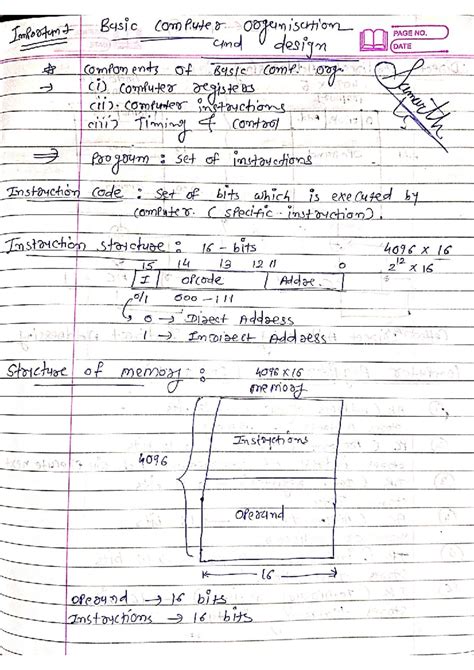 Important
Basic Computer Organisation
and design
PAGE NO.
DATE
* Components of Basic Comp. Org.
→ (i) Computer registers
(ii) Computer instructions
(iii) Timing & Control
Samarth
⇒ Program : set of instructions
Instruction Code : Set of bits which is executed by
Computer. (specific instruction).
Instruction structure : 16-bits
4096 x 16
2^12 x 16
15 14 13 12 11 0
I opcode Addre.
0/1 000-111
0 → Direct Address
1 → Indirect Address
Structure of memory :
4096x16
memory
Instructions
4096
Operand
16
Operand → 16 bits
Instructions → 16 bits